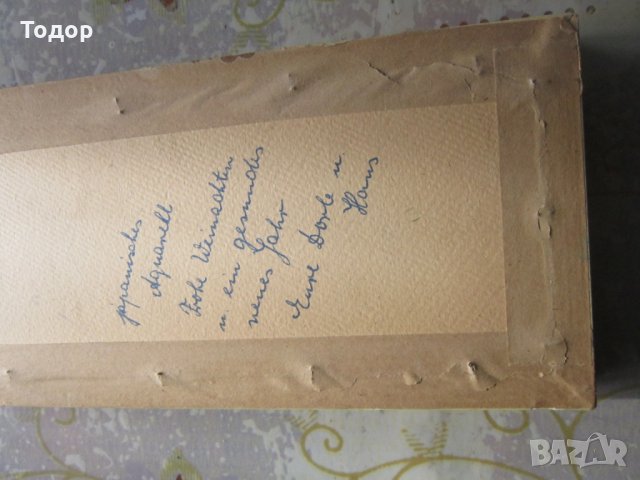 Todor
japanisches
Aquarell
Frohe Weinachten
u ein gesundes
neues Jahr
Eure Dorle u.
Hans
BAZAR
bg